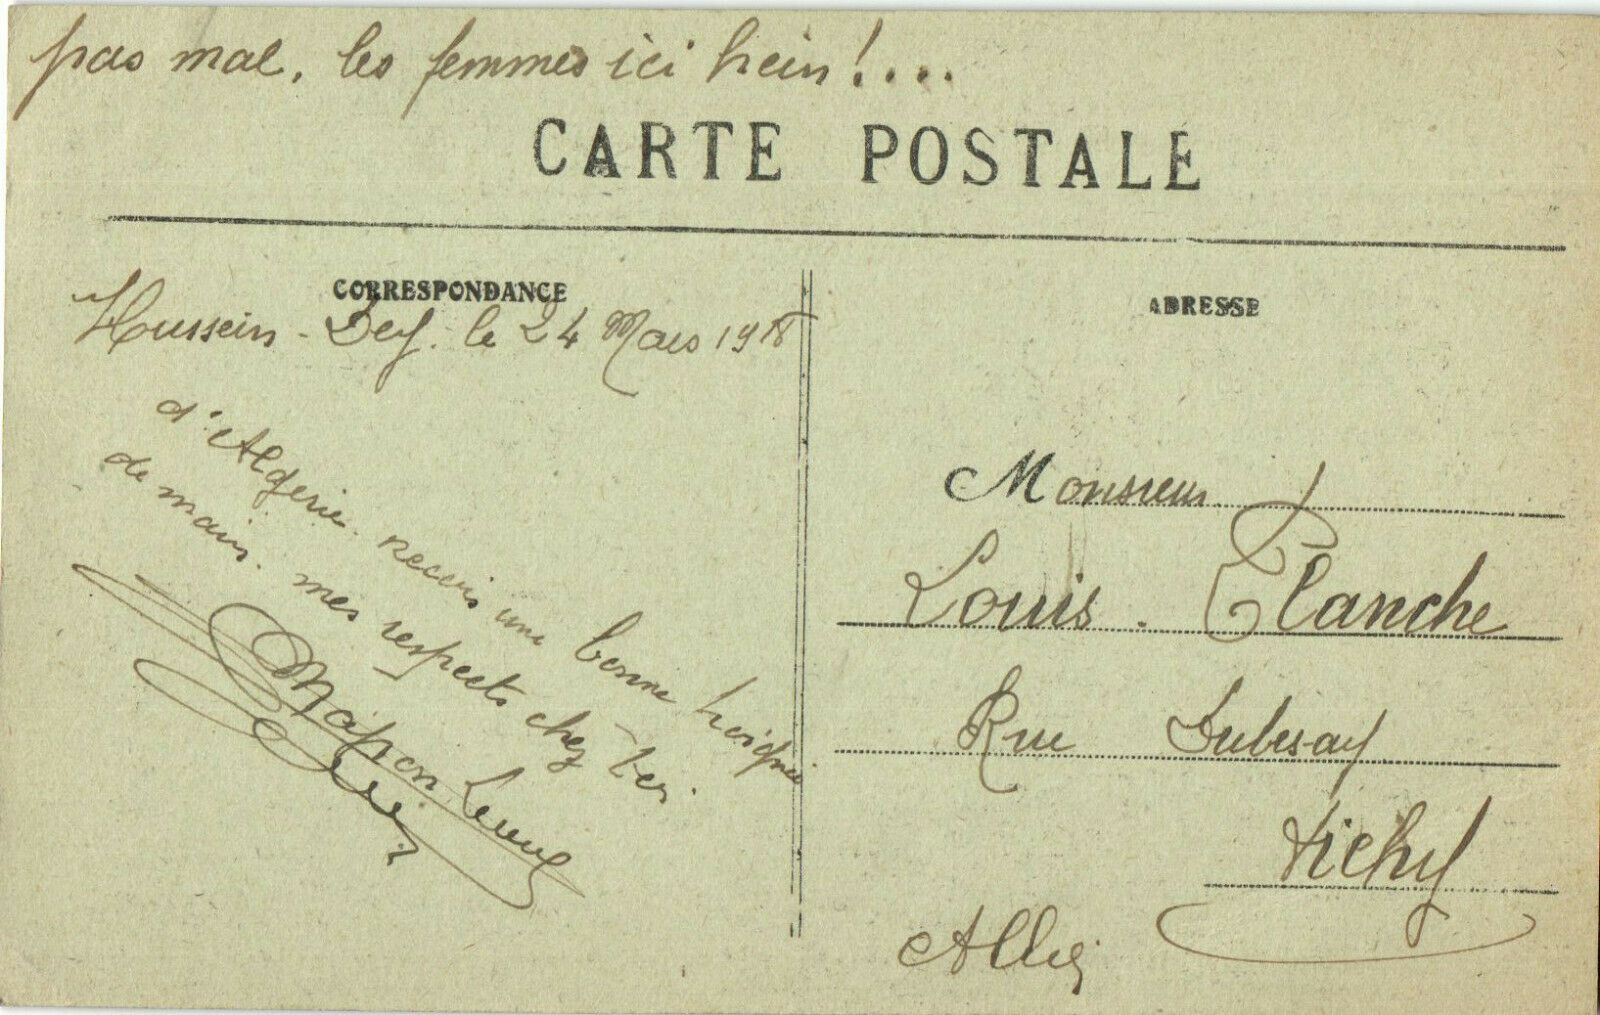 pas mal, les femmes ici hein !....
CARTE POSTALE
CORRESPONDANCE
Hussein-Dey. le 24 Mars 1918
d'Algerie recois une bonne poignée
de main. mes respects chez toi.
ADRESSE
Monsieur
Louis. Planche
Rue Lubesay
Vichy
Allier